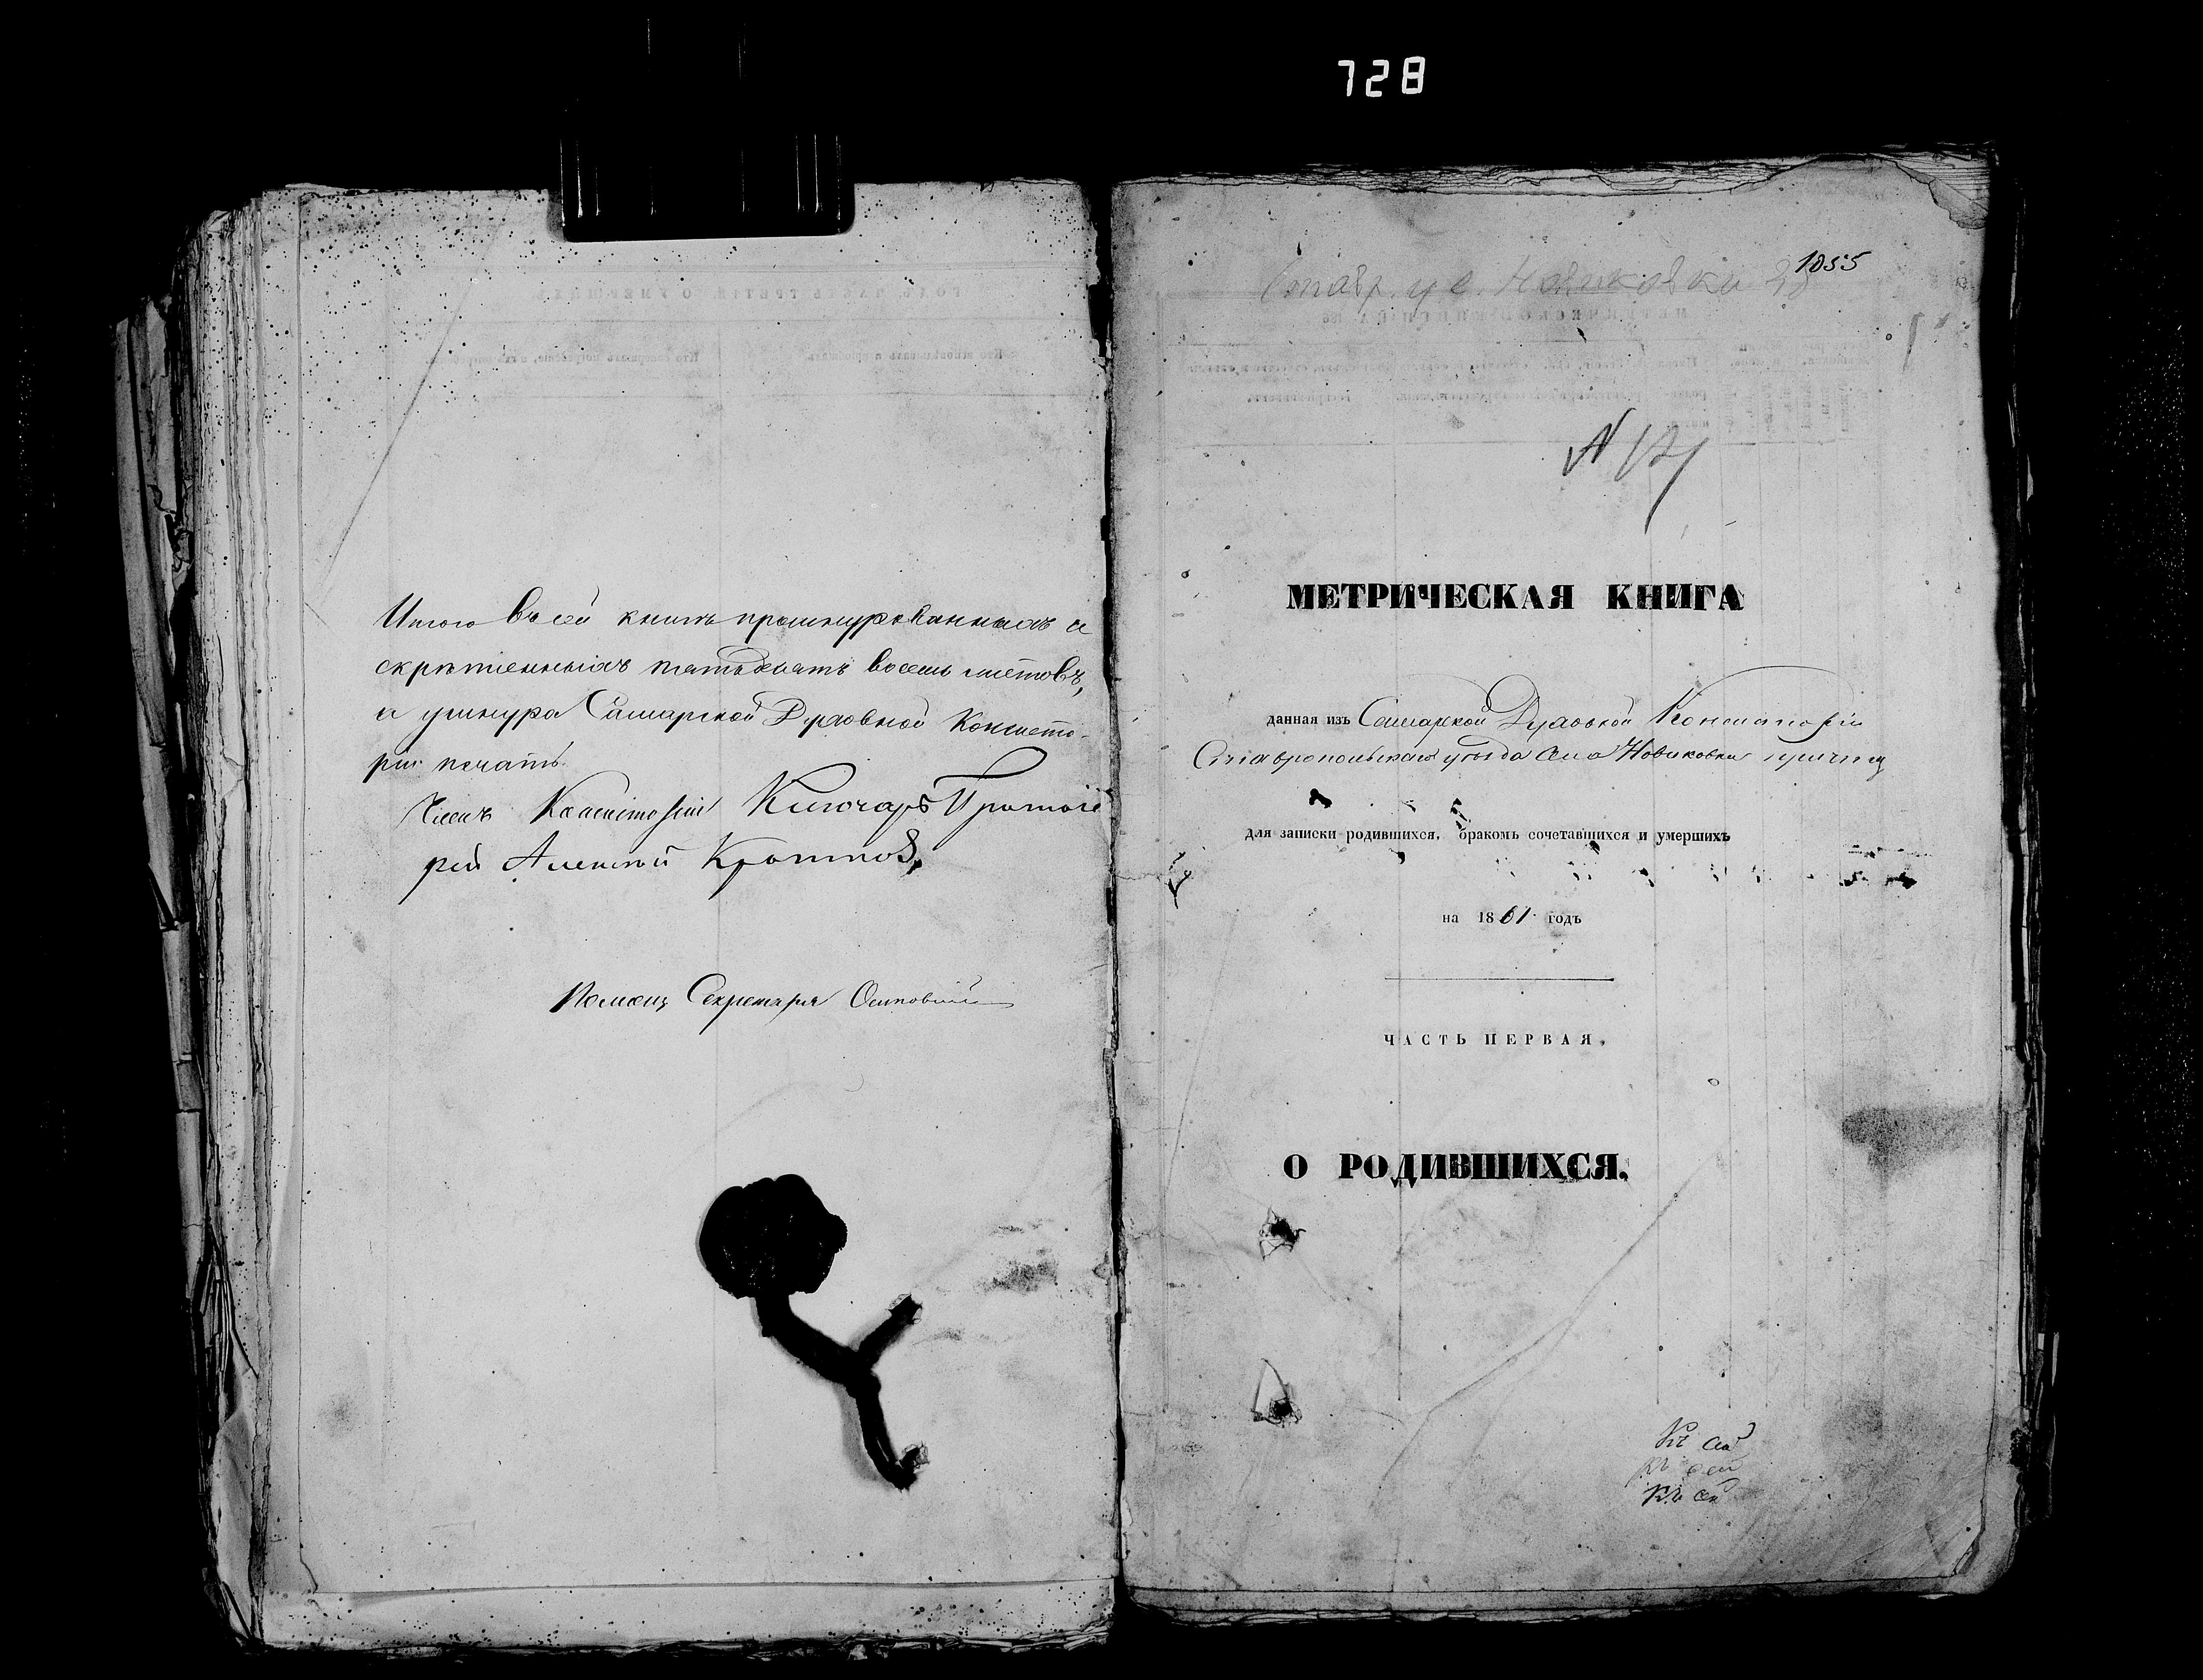 728
Итого въ сей книгѣ прошнурованныхъ и
скрѣпленныхъ пятьдесятъ восемь листовъ,
и у шнура Самарской Духовной Консисто-
ріи печать.
Членъ Консисторіи Ключарь Протоіе
рей Алексѣй Кротковъ
Помощ Секретаря Осиповскій
1055
Ставр. у с. Новиковки
N
МЕТРИЧЕСКАЯ КНИГА
данная изъ Самарской Духовной Консисторіи
Ставропольскаго уѣзда села Новиковки причту
для записки родившихся, бракомъ сочетавшихся и умершихъ
на 1861 годъ
ЧАСТЬ ПЕРВАЯ.
О РОДИВШИХСЯ.